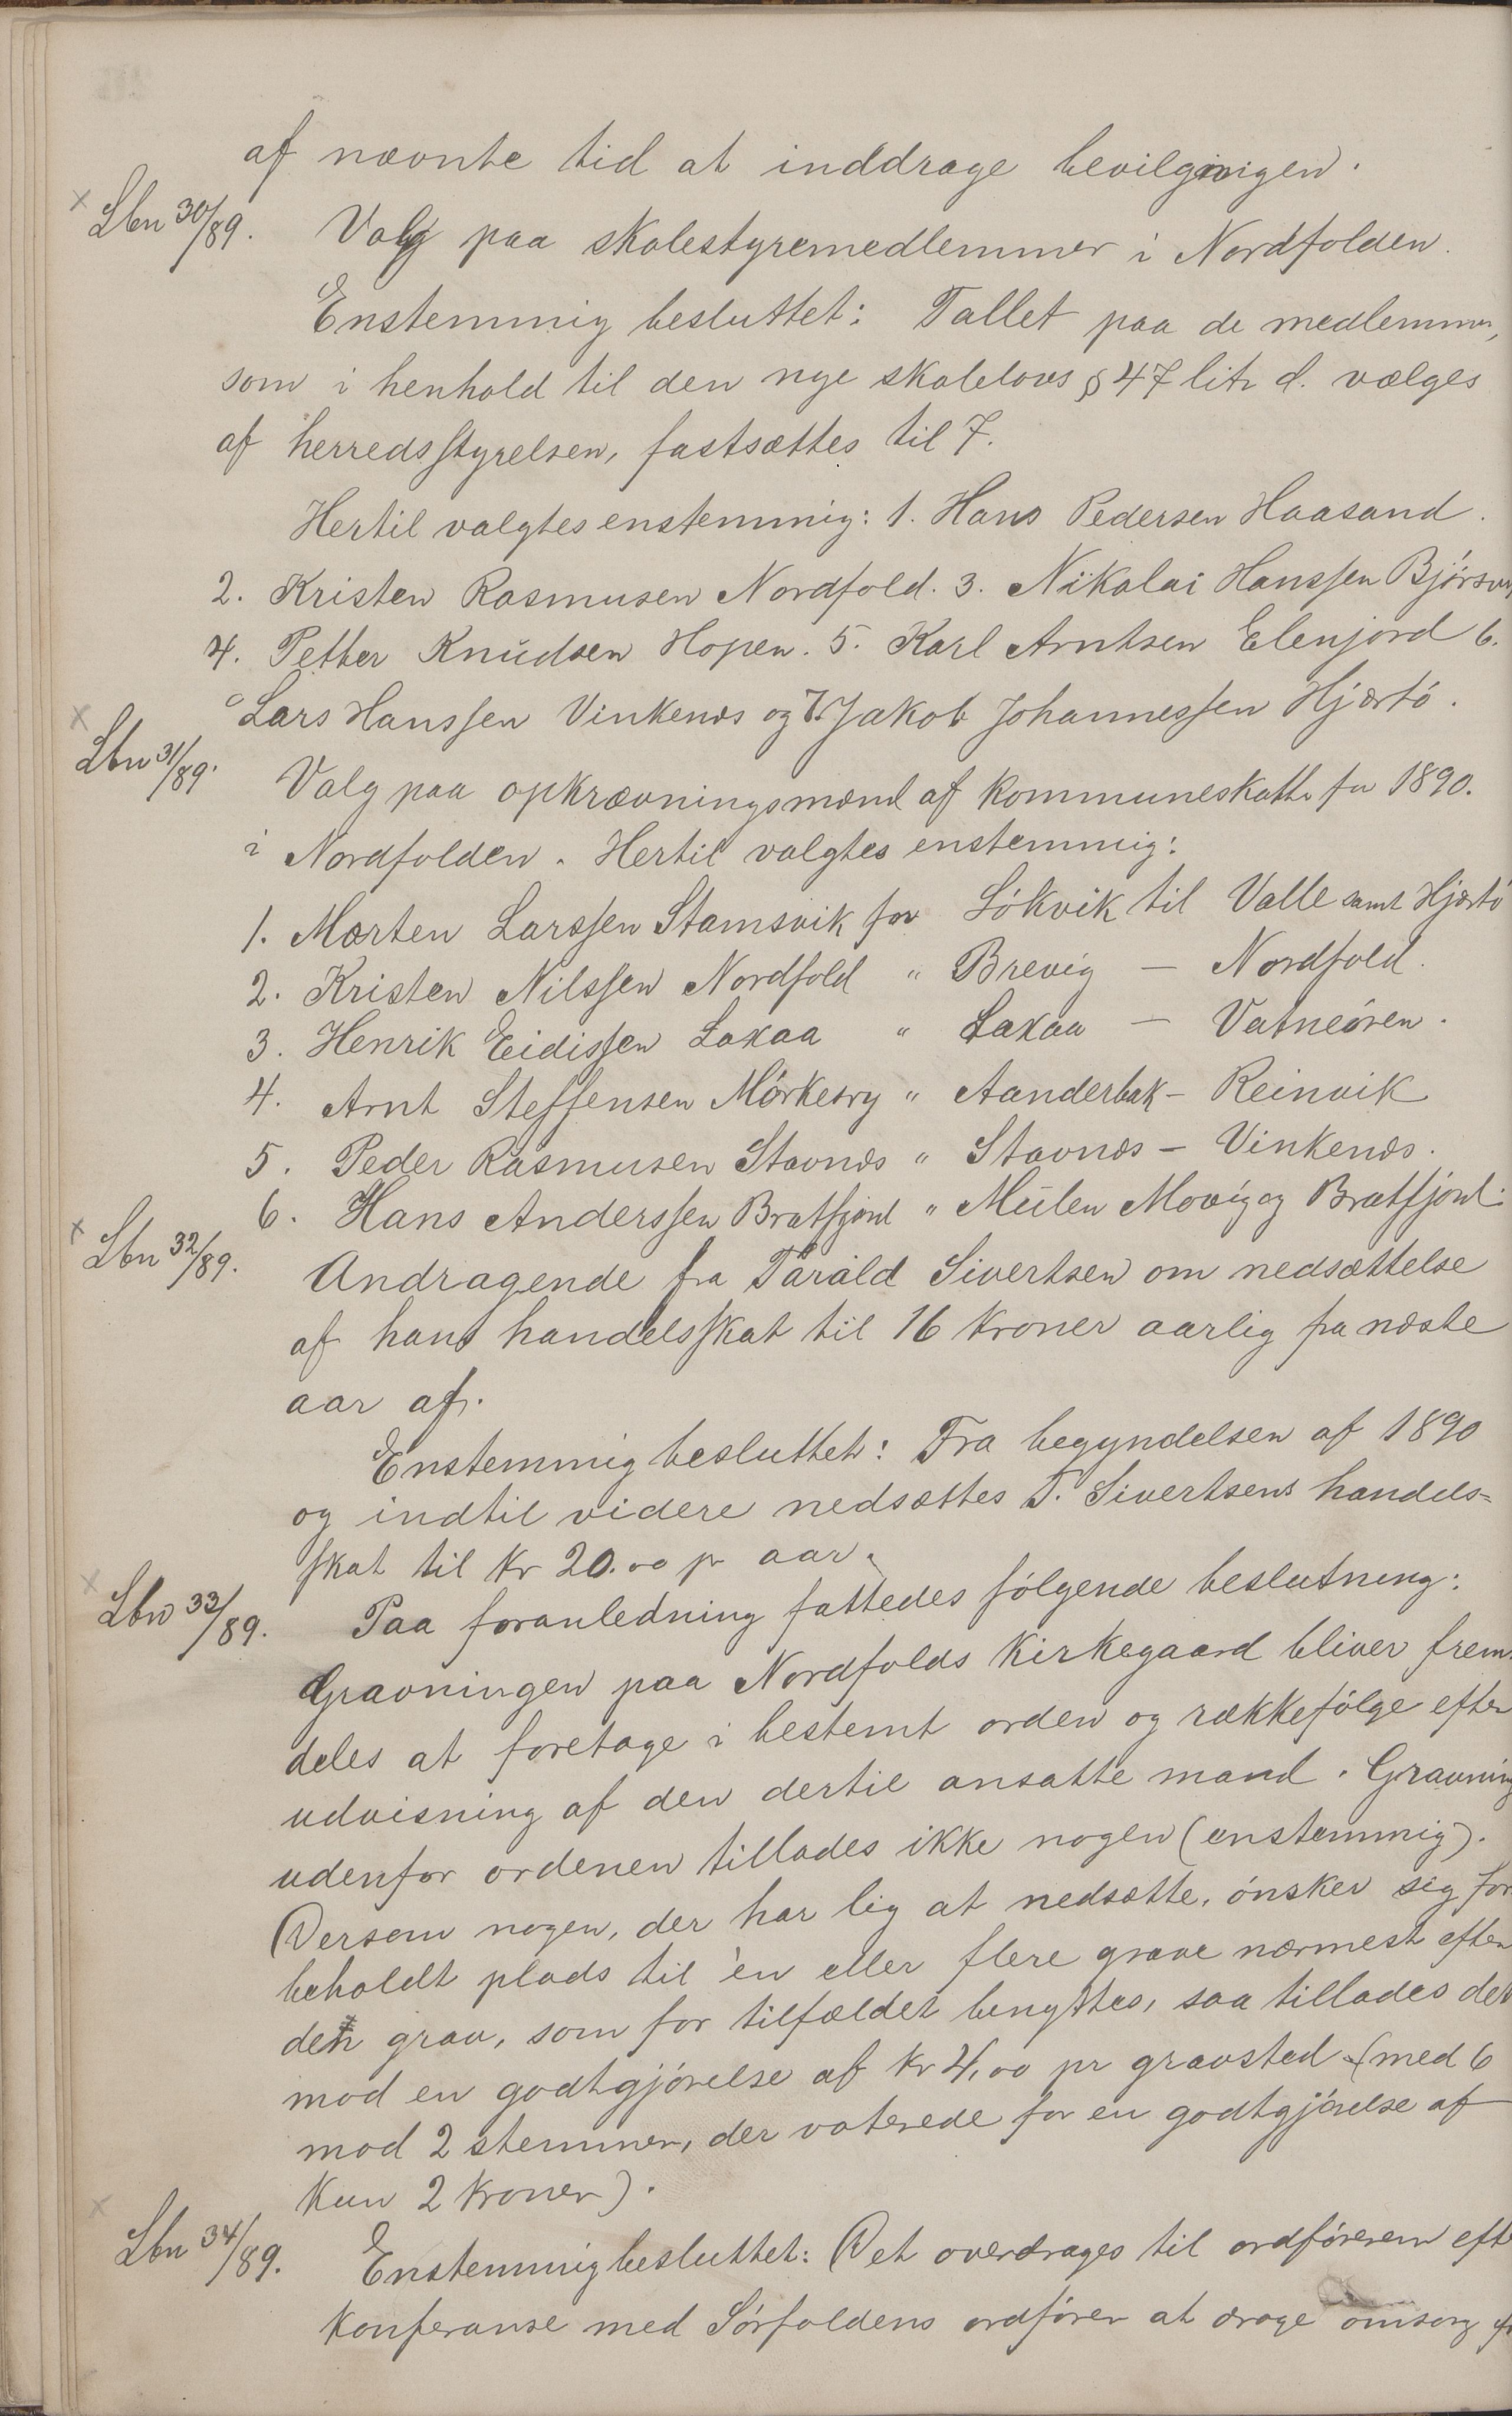 af nævnte tid at inddrage bevilgningen.
Lbn 30/89. Valg paa skolestyremedlemmer i Nordfolden.
Enstemmig besluttet: Tallet paa de medlemmer,
som i henhold til den nye skolelovs § 47 litr d. vælges
af herredsstyrelsen, fastsættes til 7.
Hertil valgtes enstemmig: 1. Hans Pedersen Haasand.
2. Kristen Rasmusen Nordfold. 3. Nikolai Hanssen
4. Petter Knudsen Hopen. 5. Karl Arntsen Elenjord 6.
Lars Hanssen Vinkenes og 7. Jakob Johannessen Hjærtö.
Lbn 31/89. Valg paa opkrævningsmænd af kommuneskatte for 1890.
i Nordfolden. Hertil valgtes enstemmig:
1. Morten Larssen Stamsvik for Lökvik til Valle samt Hjærtö
2. Kristen Nilssen Nordfold " Brevig — Nordfold.
3. Henrik Eidissen Lakaa " Lakaa — Vatneören.
4. Arnt Steffensen Mörkesry " Aanderbak – Reinvik
5. Peder Rasmusen Stavnes " Stavnes – Vinkenes.
6. Hans Anderssen Bratfjord " Mulen Movig og Bratfjord.
Lbn 32/89. Andragende fra Tarald Sivertsen om nedsættelse
af hans handelsskat til 16 kroner aarlig fra næste
aar af.
Enstemmig besluttet: Fra begyndelsen af 1890
og indtil videre nedsættes T. Sivertsens handels=
skat til kr 20.00 pr aar.
Lbn 33/89. Paa foranledning fattedes følgende beslutning:
Gravningen paa Nordfolds kirkegaard bliver frem-
deles at foretage i bestemt orden og rækkefölge efter
udvisning af den dertil ansatte mand. Gravning
udenfor ordenen tillades ikke nogen (enstemmig).
Dersom nogen, der har lig at nedsætte, önsker sig for
beholdt plads til èn eller flere grave nærmest efter
den grav, som for tilfældet benyttes, saa tillades det
mod en godtgjörelse af kr 4,00 pr gravsted (med 6
mod 2 stemmer, der voterede for en godtgjörelse af
kun 2 kroner).
Lbn 34/89. Enstemmig besluttet: Det overdrages til ordföreren eft
konferanse med Sörfoldens ordförer at drage omsorg